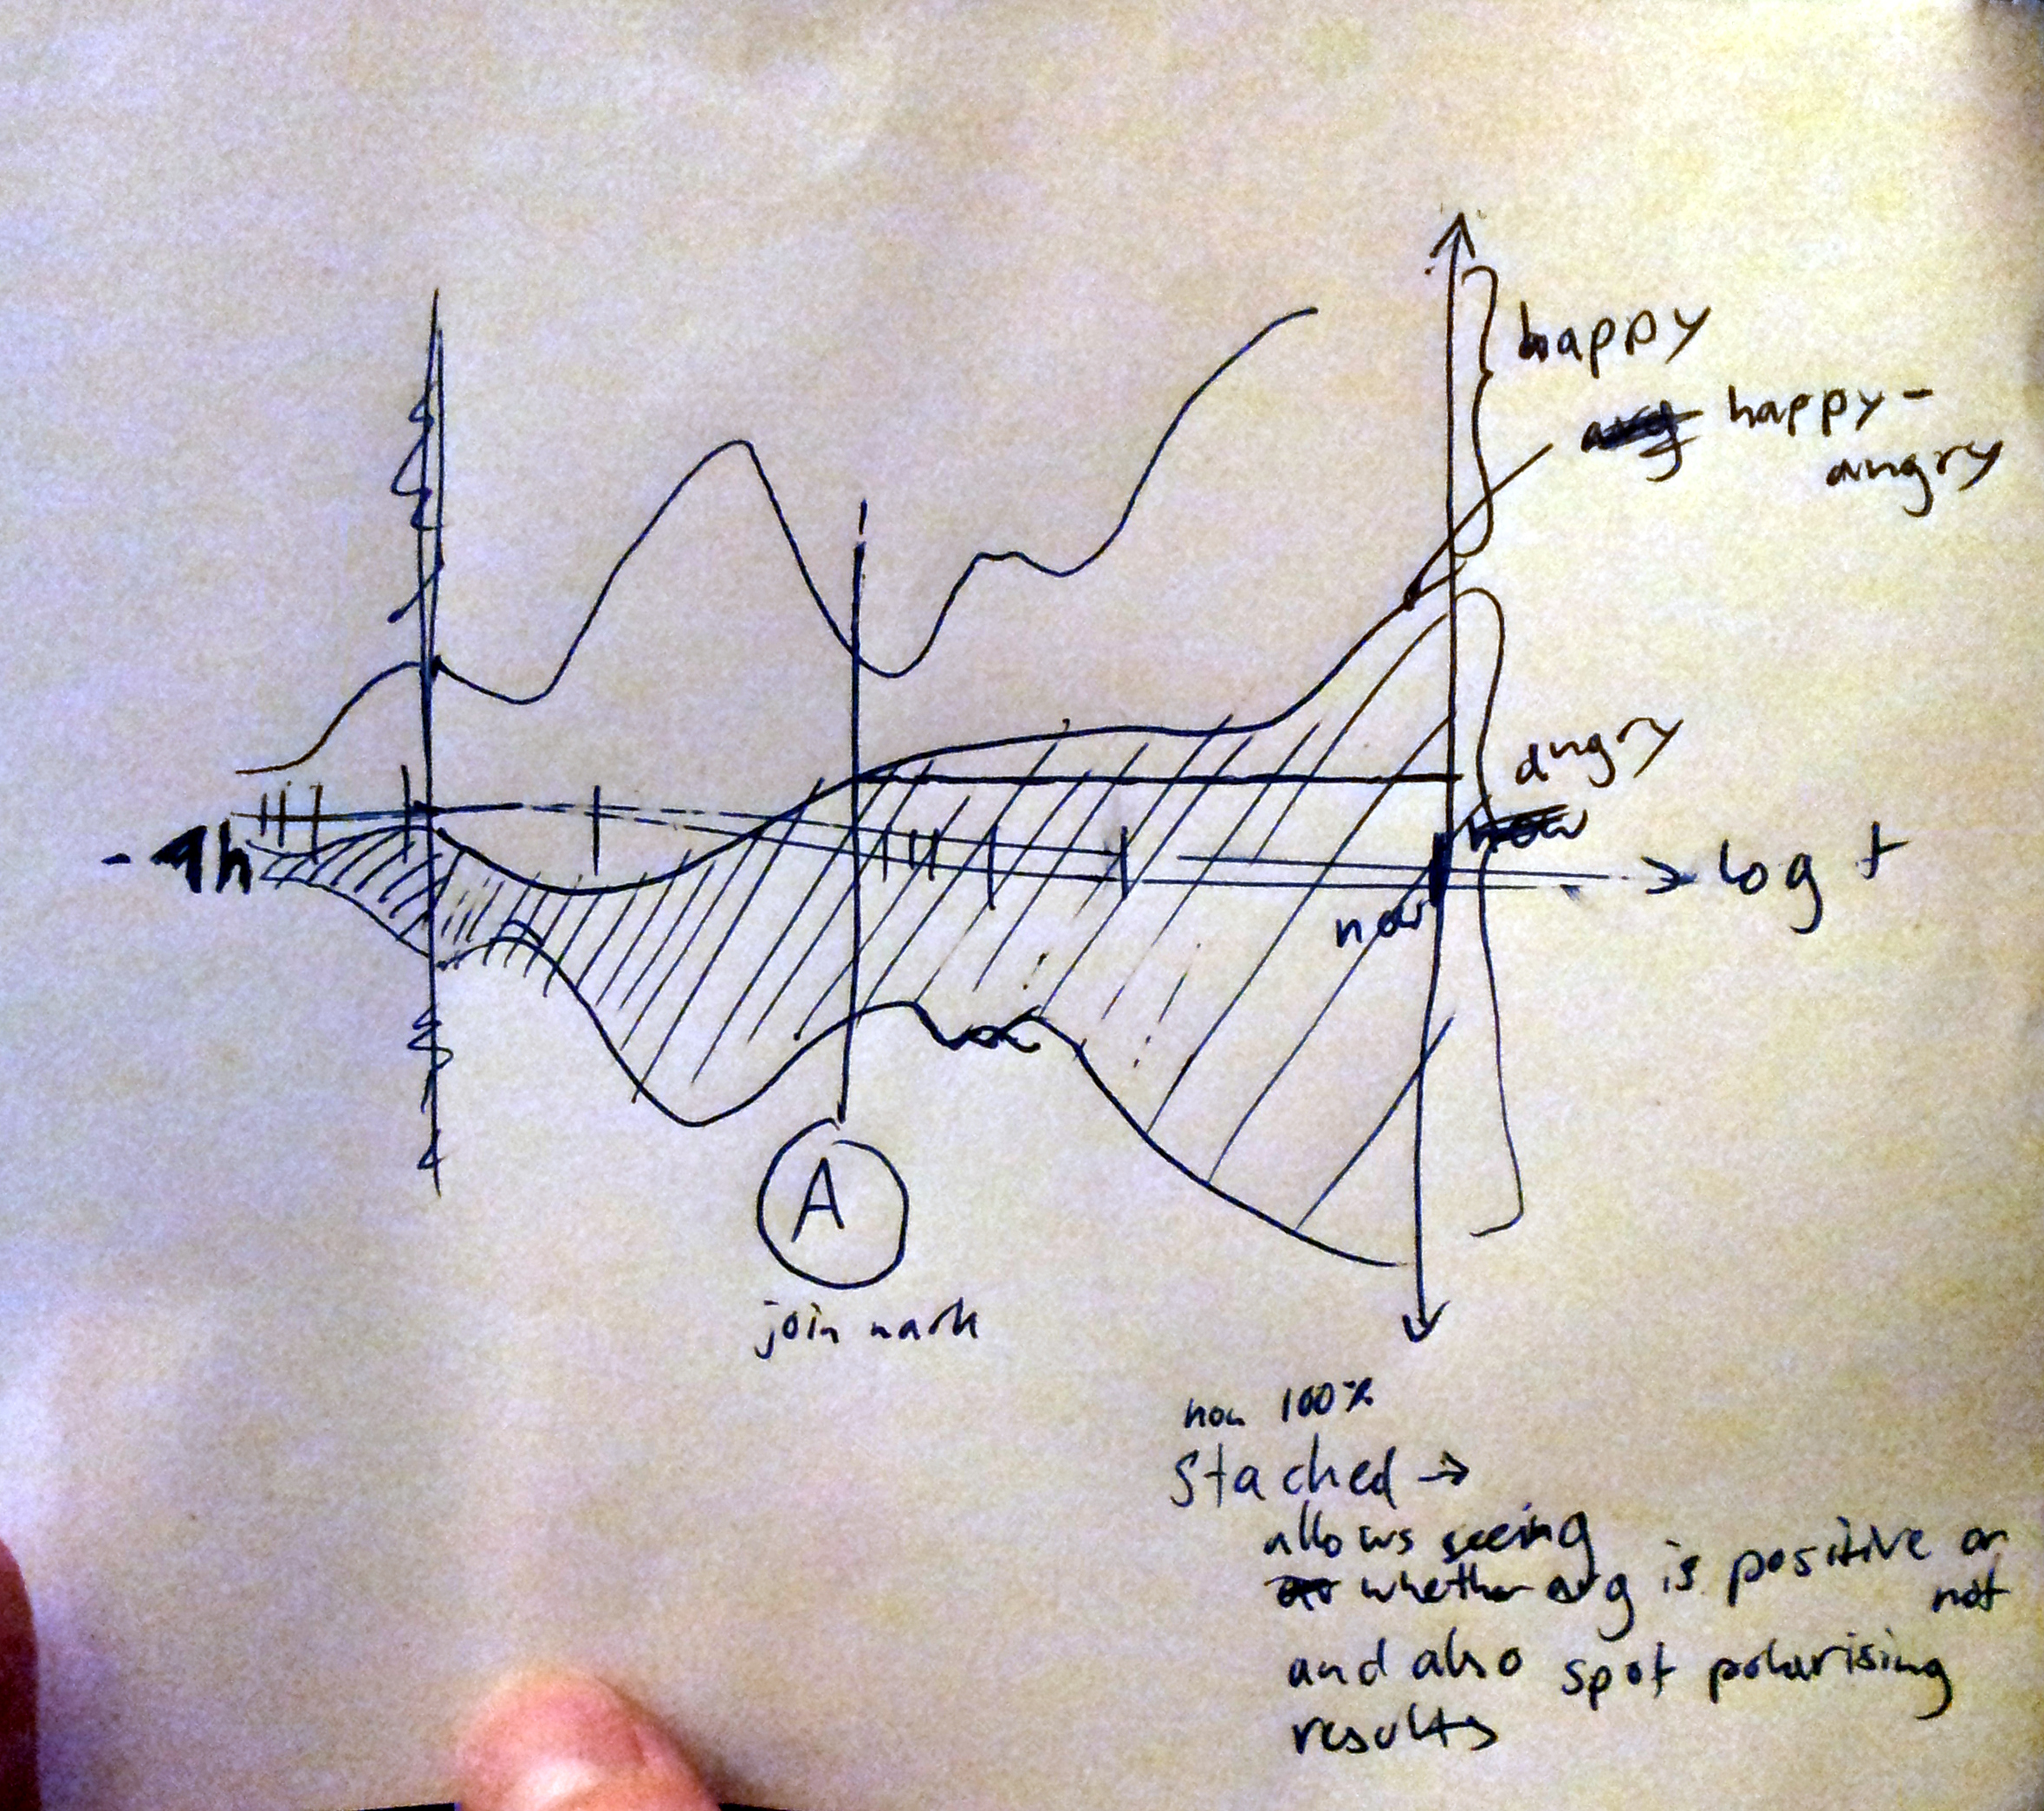 happy
avg happy-
angry
angry
now
-1h
log t
now
A
join mark
non 100%
Stacked →
allows seeing
whether avg is positive or
not
and also spot polarising
results